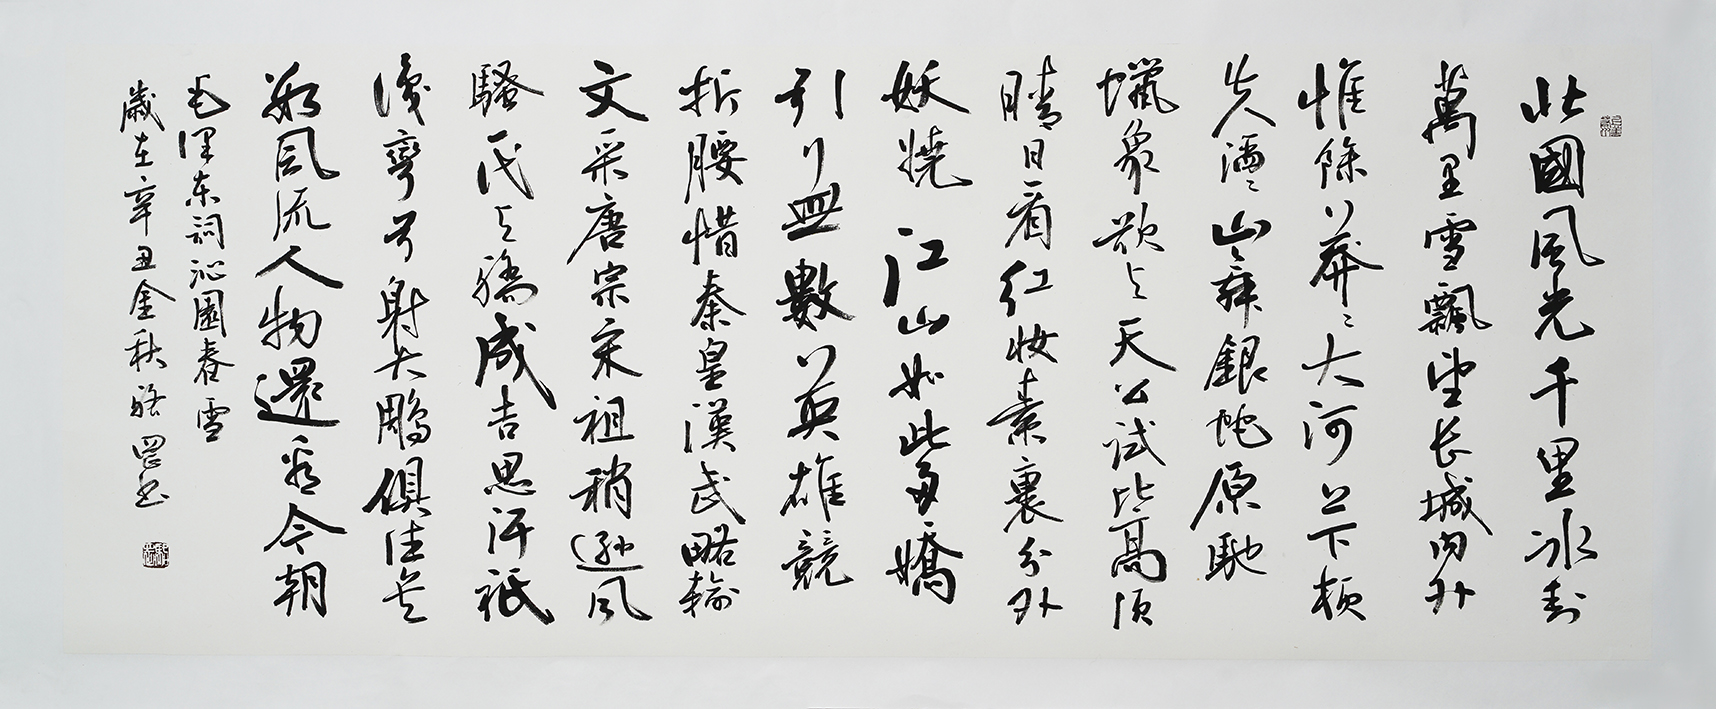 北國風光千里冰封
萬里雪飄望长城内外
惟餘莽々大河上下頓
失滔々山舞銀蛇原馳
蠟象欲与天公试比高须
晴日看红妆素裹分外
妖娆江山如此多嬌
引無數英雄競
折腰惜秦皇漢武略輸
文采唐宗宋祖稍逊風
騷一代天驕成吉思汗祇
識彎弓射大鵰俱往矣
数風流人物還看今朝
毛澤东詞沁園春雪
歲在辛丑金秋书